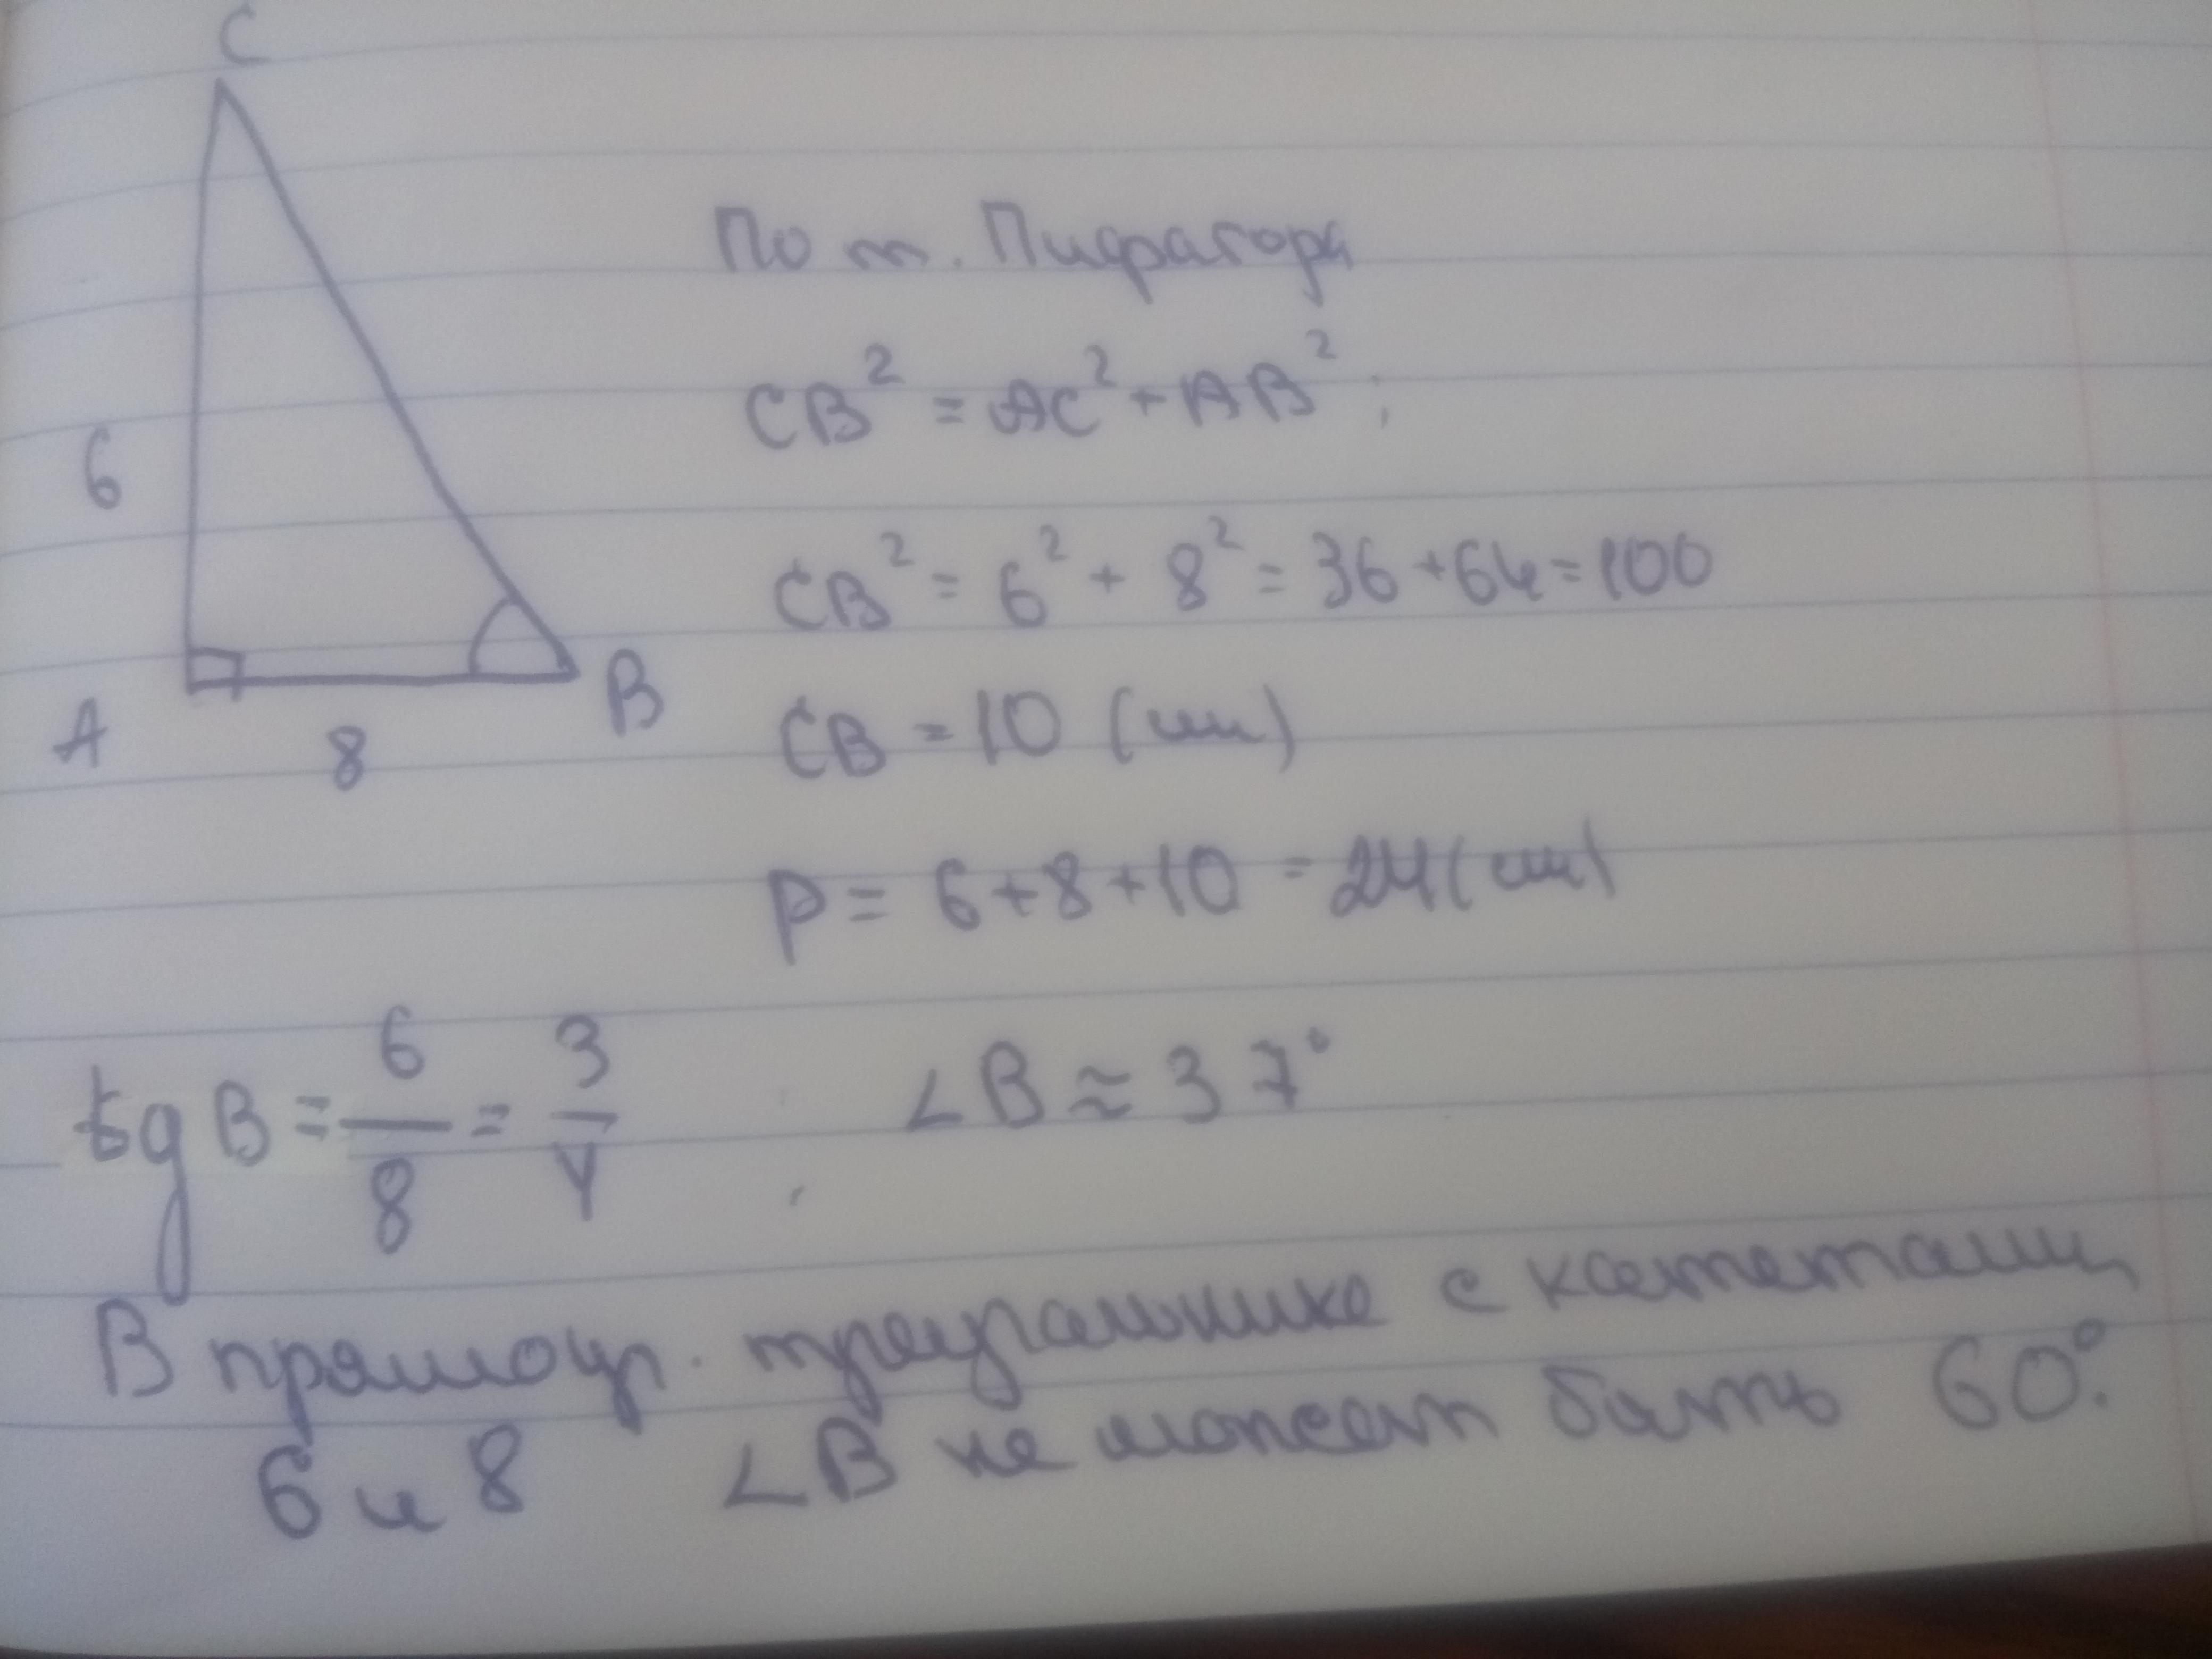 C
По т. Пифагора
CB² = AC² + AB² ;
6
CB² = 6² + 8² = 36 + 64 = 100
A
8
B
CB = 10 (см)
P = 6 + 8 + 10 = 24 (см)
tg B = 6/8 = 3/4
∠B ≈ 37°
В прямоуг. треугольнике с катетами
6 и 8 ∠B не может быть 60°.